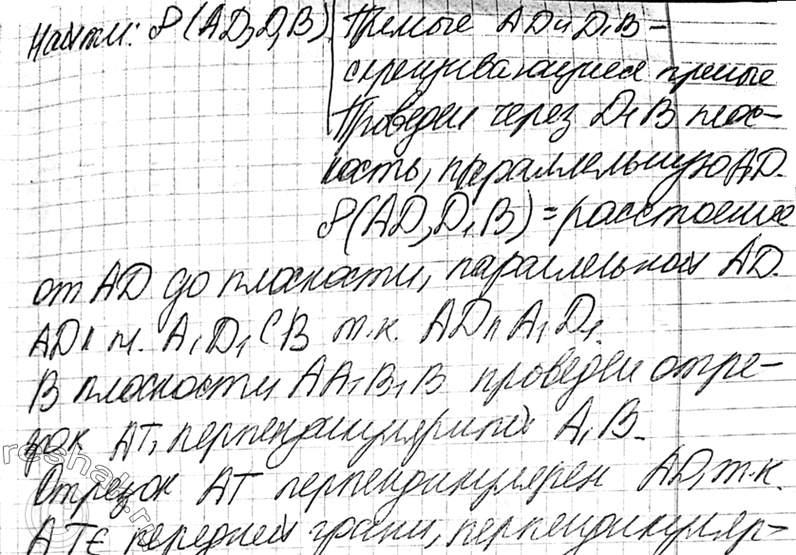 Найти: ρ(AD, D₁B)
Прямые AD и D₁B –
скрещивающиеся прямые
Проведем через D₁B плос-
кость, параллельную AD.
ρ(AD, D₁B) = расстояние
от AD до плоскости, параллельной AD.
AD ∥ п. A₁D₁CB т.к. AD ∥ A₁D₁.
В плоскости AA₁B₁B проведем отре-
зок AT, перпендикулярный A₁B.
Отрезок AT перпендикулярен AD, т.к.
AT ∈ передней грани, перпендикуляр-
reshak.ru